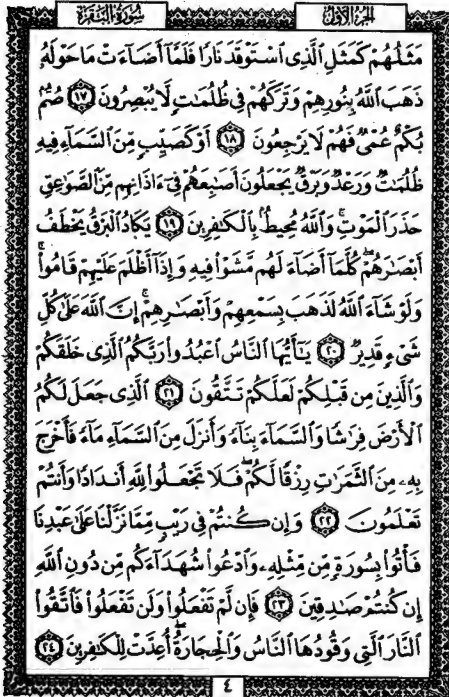 سُورَةُ البَقَرَةِ الجُزءُ الأَوَّلُ
مَثَلُهُمْ كَمَثَلِ ٱلَّذِى ٱسْتَوْقَدَ نَارًا فَلَمَّآ أَضَآءَتْ مَا حَوْلَهُۥ
ذَهَبَ ٱللَّهُ بِنُورِهِمْ وَتَرَكَهُمْ فِى ظُلُمَـٰتٍ لَّا يُبْصِرُونَ ١٧ صُمٌّۢ
بُكْمٌ عُمْىٌ فَهُمْ لَا يَرْجِعُونَ ١٨ أَوْ كَصَيِّبٍ مِّنَ ٱلسَّمَآءِ فِيهِ
ظُلُمَـٰتٌ وَرَعْدٌ وَبَرْقٌ يَجْعَلُونَ أَصَـٰبِعَهُمْ فِىٓ ءَاذَانِهِم مِّنَ ٱلصَّوَٰعِقِ
حَذَرَ ٱلْمَوْتِ ۚ وَٱللَّهُ مُحِيطٌۢ بِٱلْكَـٰفِرِينَ ١٩ يَكَادُ ٱلْبَرْقُ يَخْطَفُ
أَبْصَـٰرَهُمْ ۖ كُلَّمَآ أَضَآءَ لَهُم مَّشَوْا۟ فِيهِ وَإِذَآ أَظْلَمَ عَلَيْهِمْ قَامُوا۟ ۚ
وَلَوْ شَآءَ ٱللَّهُ لَذَهَبَ بِسَمْعِهِمْ وَأَبْصَـٰرِهِمْ ۚ إِنَّ ٱللَّهَ عَلَىٰ كُلِّ
شَىْءٍ قَدِيرٌ ٢٠ يَـٰٓأَيُّهَا ٱلنَّاسُ ٱعْبُدُوا۟ رَبَّكُمُ ٱلَّذِى خَلَقَكُمْ
وَٱلَّذِينَ مِن قَبْلِكُمْ لَعَلَّكُمْ تَتَّقُونَ ٢١ ٱلَّذِى جَعَلَ لَكُمُ
ٱلْأَرْضَ فِرَٰشًا وَٱلسَّمَآءَ بِنَآءً وَأَنزَلَ مِنَ ٱلسَّمَآءِ مَآءً فَأَخْرَجَ
بِهِۦ مِنَ ٱلثَّمَرَٰتِ رِزْقًا لَّكُمْ ۖ فَلَا تَجْعَلُوا۟ لِلَّهِ أَندَادًا وَأَنتُمْ
تَعْلَمُونَ ٢٢ وَإِن كُنتُمْ فِى رَيْبٍ مِّمَّا نَزَّلْنَا عَلَىٰ عَبْدِنَا
فَأْتُوا۟ بِسُورَةٍ مِّن مِّثْلِهِۦ وَٱدْعُوا۟ شُهَدَآءَكُم مِّن دُونِ ٱللَّهِ
إِن كُنتُمْ صَـٰدِقِينَ ٢٣ فَإِن لَّمْ تَفْعَلُوا۟ وَلَن تَفْعَلُوا۟ فَٱتَّقُوا۟
ٱلنَّارَ ٱلَّتِى وَقُودُهَا ٱلنَّاسُ وَٱلْحِجَارَةُ ۖ أُعِدَّتْ لِلْكَـٰفِرِينَ ٢٤
٤